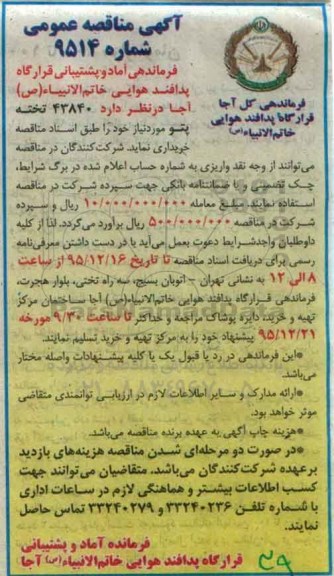 آگهی مناقصه عمومی
شماره ۹۵۱۴
فرماندهی کل آجا
قرارگاه پدافند هوایی
خاتم‌الانبیاء(ص)
فرماندهی آماد و پشتیبانی قرارگاه
پدافند هوایی خاتم‌الانبیاء(ص)
آجا درنظر دارد ۴۳۸۴۰ تخته
پتو موردنیاز خود را طبق اسناد مناقصه
خریداری نماید. شرکت‌کنندگان در مناقصه
می‌توانند از وجه نقد واریزی به شماره حساب اعلام شده در برگ شرایط،
چک تضمینی و یا ضمانتنامه بانکی جهت سپرده شرکت در مناقصه
استفاده نمایند. مبلغ معامله ۱۰/۰۰۰/۰۰۰/۰۰۰ ریال و سپرده
شرکت در مناقصه ۵۰۰/۰۰۰/۰۰۰ ریال برآورد می‌گردد. لذا از کلیه
داوطلبان واجدشرایط دعوت بعمل می‌آید با در دست داشتن معرفی‌نامه
رسمی برای دریافت اسناد مناقصه تا تاریخ ۹۵/۱۲/۱۶ از ساعت
۸ الی ۱۲ به نشانی تهران - اتوبان بسیج، سه راه تختی، بلوار هجرت،
فرماندهی قرارگاه پدافند هوایی خاتم‌الانبیاء(ص) آجا ساختمان مرکز
تهیه و خرید، دایره پوشاک مراجعه و حداکثر تا ساعت ۹/۳۰ مورخه
۹۵/۱۲/۲۱ پیشنهاد خود را به مرکز تهیه و خرید تسلیم نمایند.
*این فرماندهی در رد یا قبول یک یا کلیه پیشنهادات واصله مختار
می‌باشد.
*ارائه مدارک و سایر اطلاعات لازم در ارزیابی توانمندی متقاضی
موثر خواهد بود.
*هزینه چاپ آگهی به عهده برنده مناقصه می‌باشد.
*در صورت دو مرحله‌ای شدن مناقصه هزینه‌های بازدید
برعهده شرکت‌کنندگان می‌باشد. متقاضیان می‌توانند جهت
کسب اطلاعات بیشتر و هماهنگی لازم در ساعات اداری
با شماره تلفن ۳۳۲۴۰۲۳۶ و ۳۳۲۴۰۲۷۹ تماس حاصل
نمایند.
فرمانده آماد و پشتیبانی
قرارگاه پدافند هوایی خاتم‌الانبیاء(ص) آجا